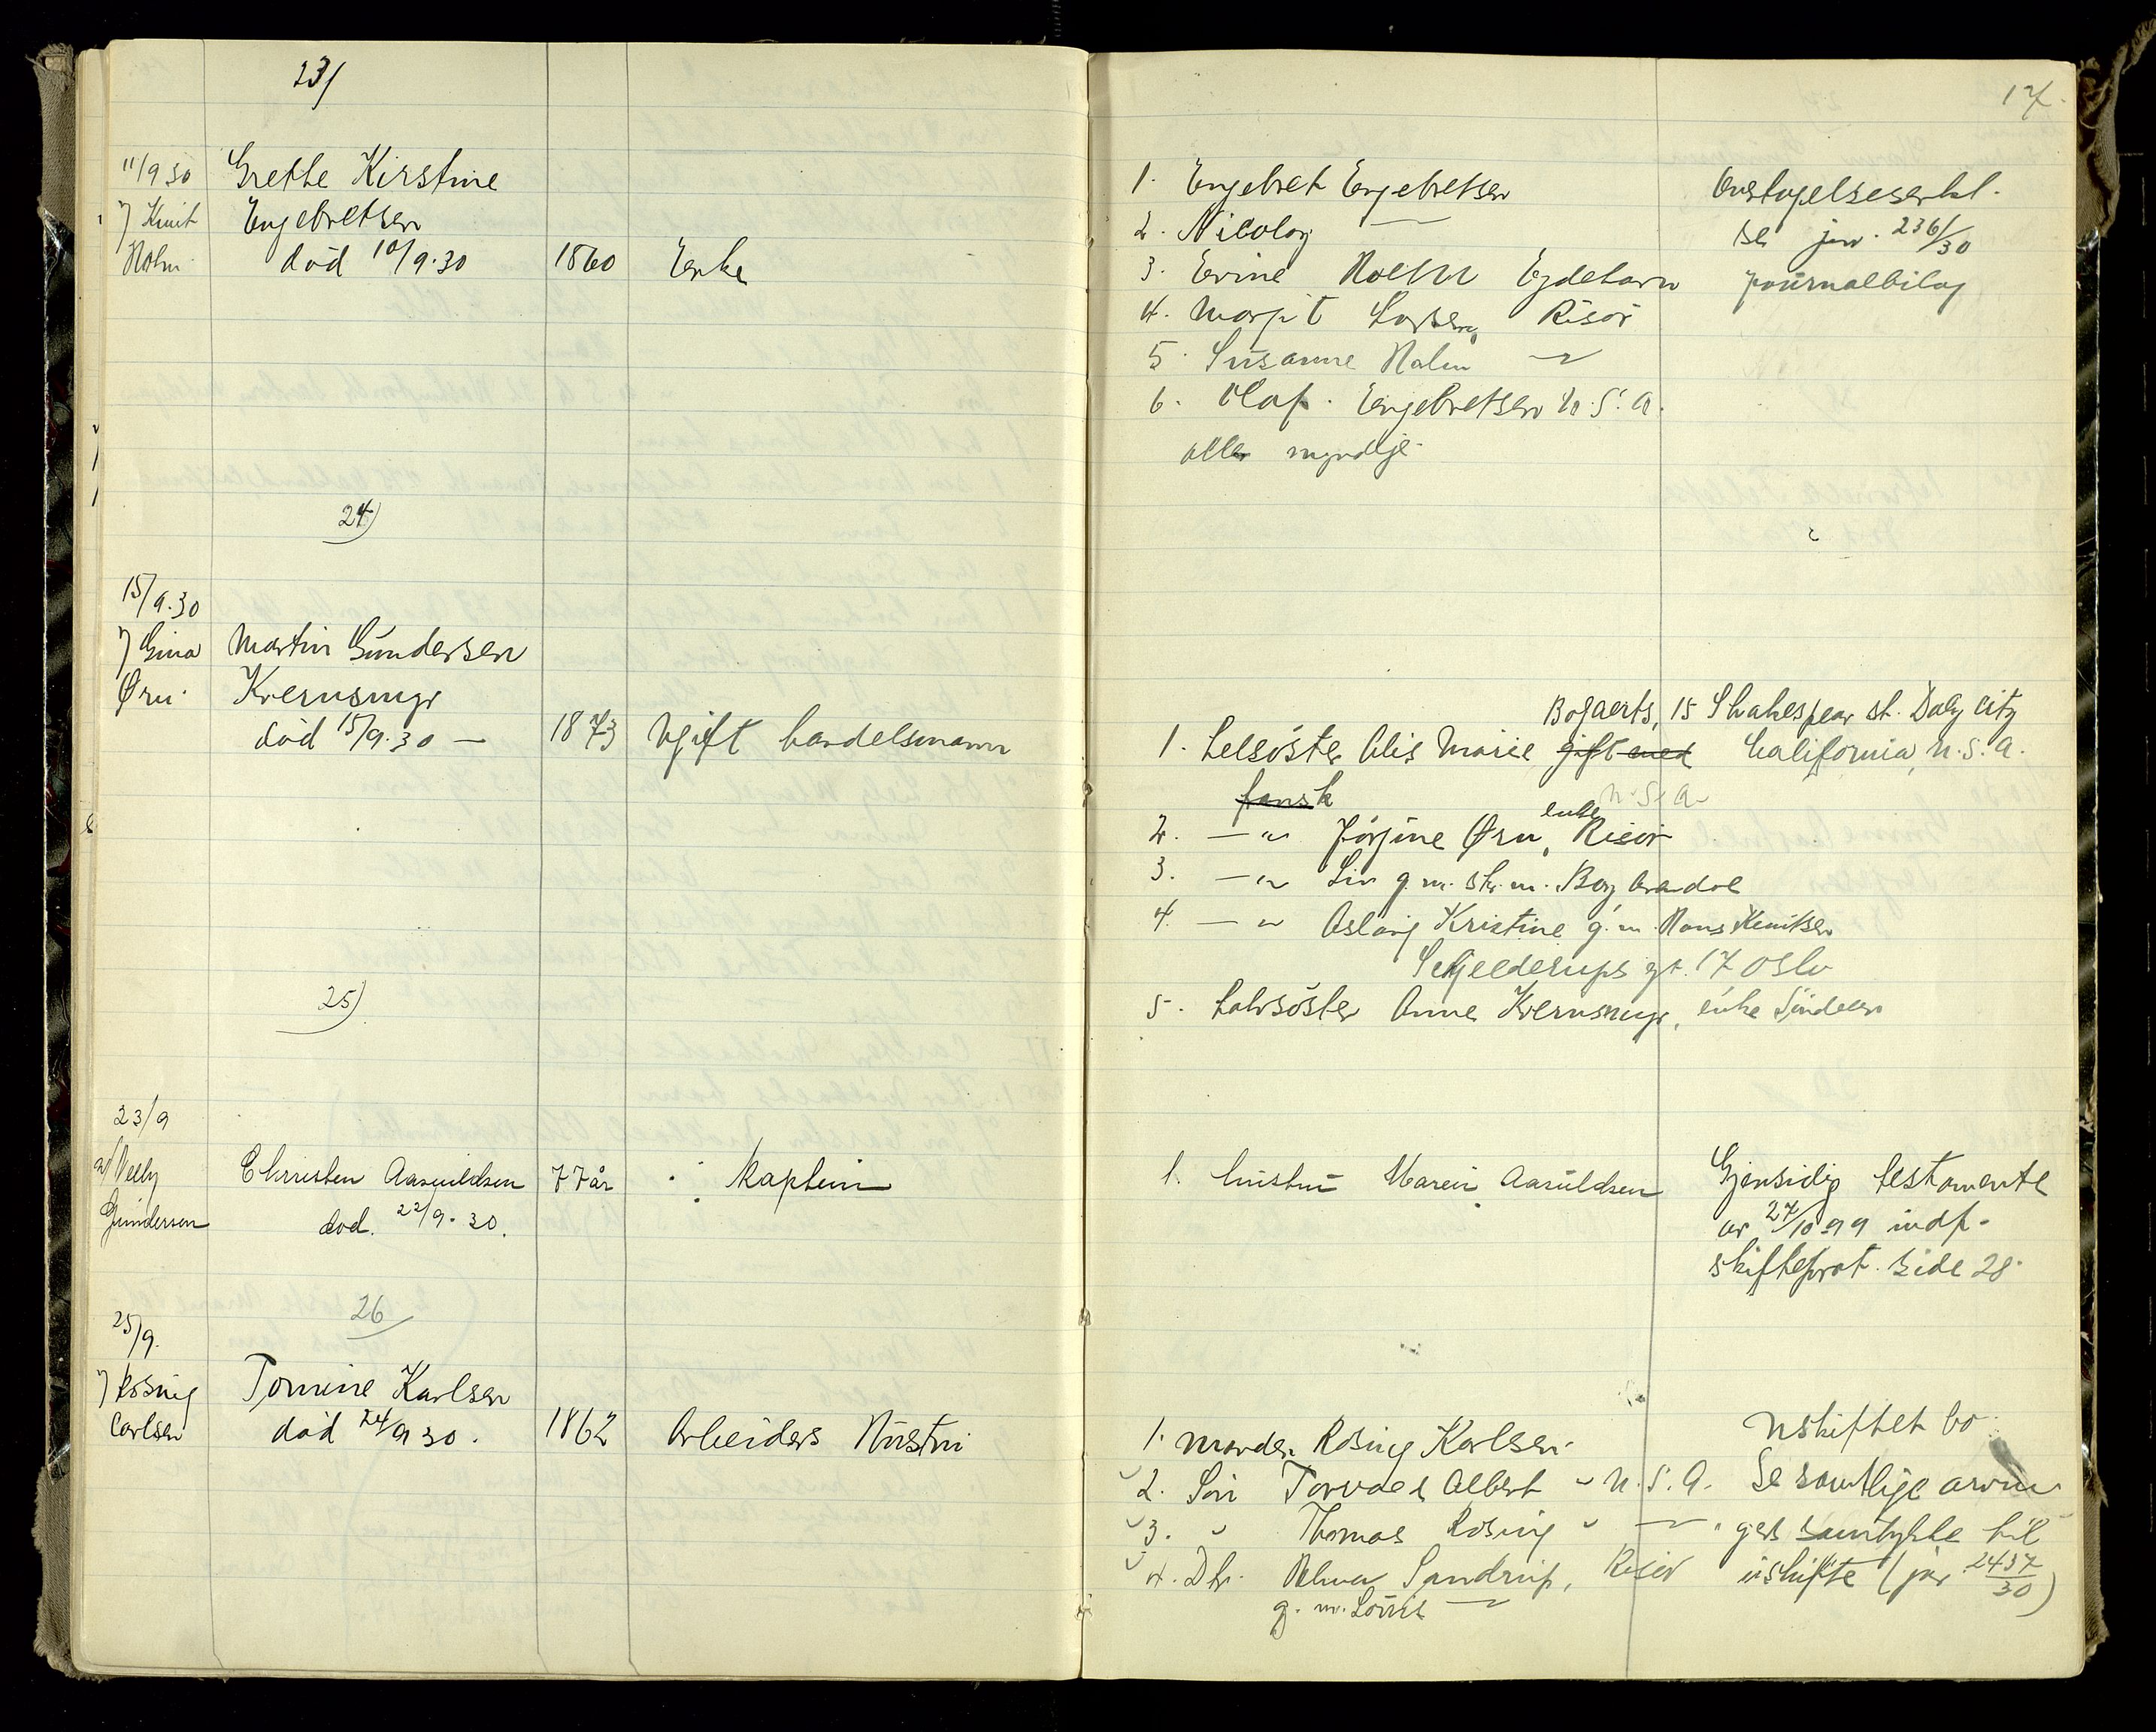 17.
23/
11/9 30 Grethe Kirstine
v/ Knut Engebretsen
Holm død 10/9.30 1860 Enke
1. Engebret Engebretsen
2. Nicolay —
3. Holm Eydehavn
4. Margit Larsen, Risør
5. Susanne Holm —"—
6. Olaf Engebretsen U.S.A.
alle myndige
Overtagelseserkl.
se jnr. 236/30
journalbilag
24)
15/9.30
v/ Gina Martin Gundersen
Ørn. Kvernsmyr
død 15/9.30 — 1873 Ugift handelsmann
Bogaerts, 15 Shakespear st. Daly City
1. Helsøster Alis Marie gift med California, U.S.A.
fansk U.S.A.
enke
2. —"— Jørgine Ørn, Risør
3. —"— Liv g.m. sk.m. Boy Arendal
4. —"— Aslaug Kristine g.m. Hans Knutsen
Schjelderups gt. 17 Oslo
5. Halvsøster Anne Kvernsmyr, enke Søndeled
25)
23/9
a/ Nelly Christen Aanuldsen 77 år Kaptein
Gundersen død. 22/9.30.
1. hustru Maren Aanuldsen
Gjensidig testamente
av 27/10 99 indf.
skifteprot. side 28.
26
25/9.
v/ Rosing Tomine Karlsen
Carlsen død 24/9 30. 1862 Arbeiders Hustru
1. Manden Rosing Karlsen
2. Søn Torvald Albert " U.S.A.
3. " Thomas Rosing " —"—
4. Dtr. Sandrup, Risør
g.m. Louis —"—
Uskiftet bo.
Se samtlige arvin-
gers samtykke til
uskifte (jnr 2437/30)